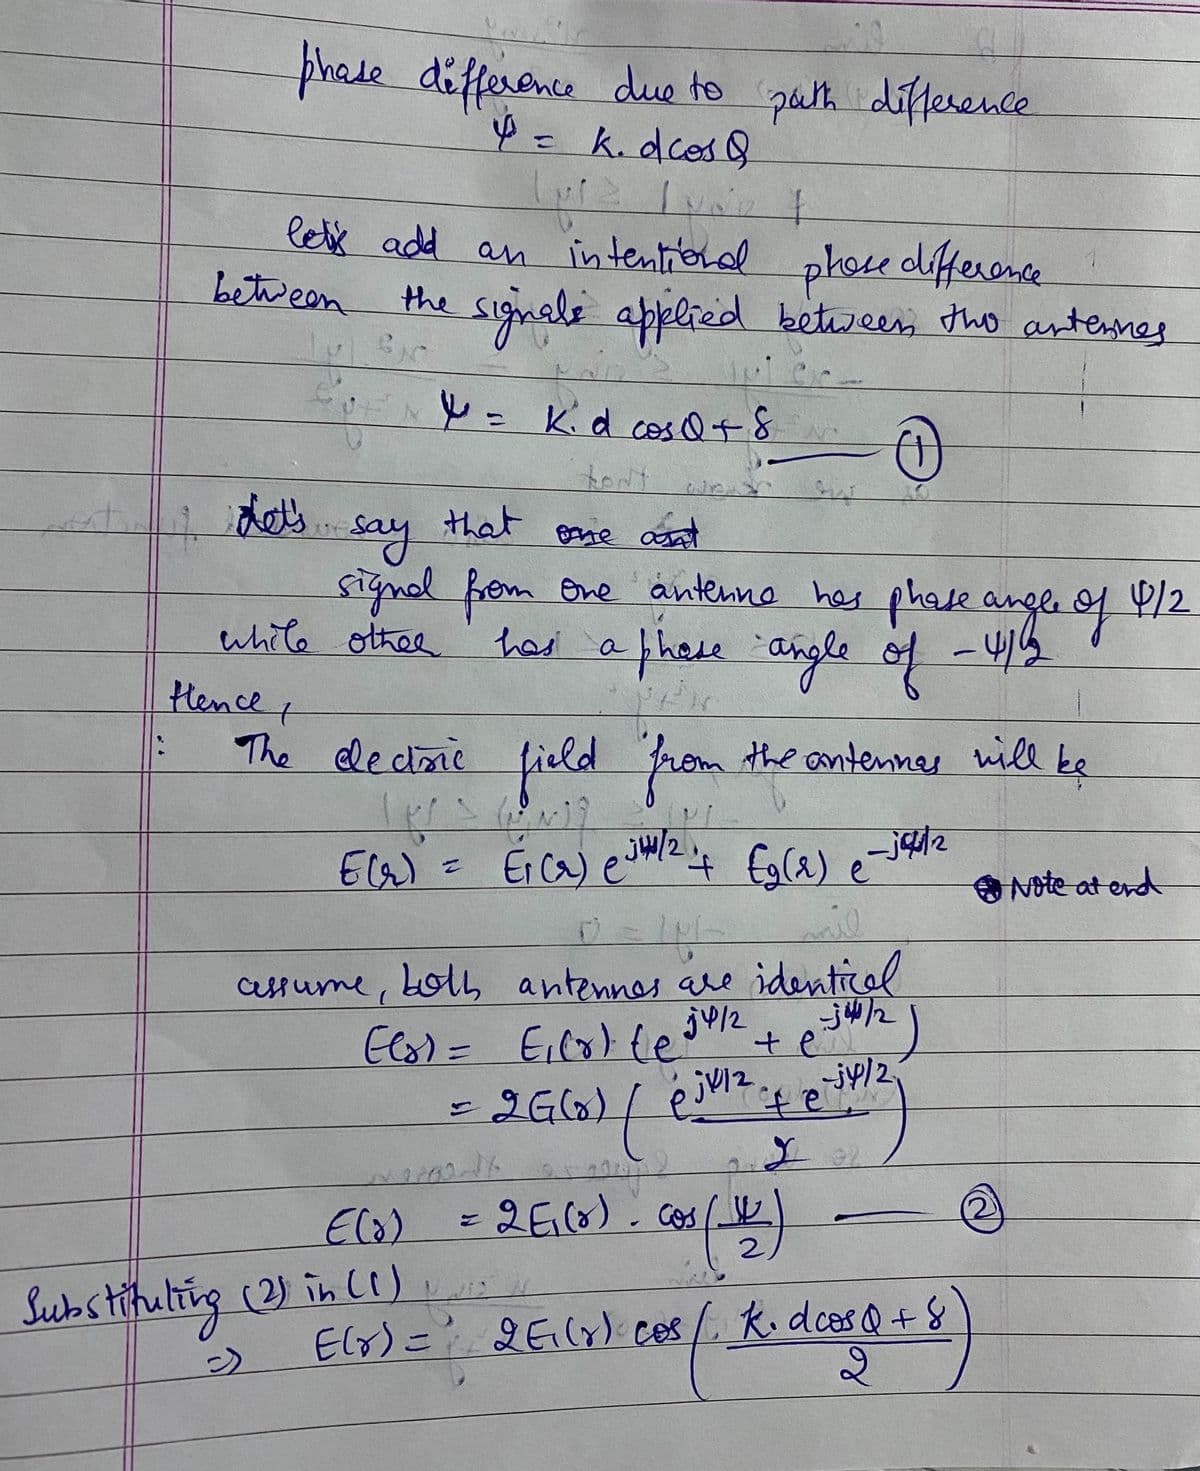 phase difference due to path difference
ψ = k. d cos Q
let's add an intentional phase difference
between the signals applied between two antennes
ψ = K. d cos Q + δ — ①
Let's say that
signal from one antenna has phase angle of ψ/2
while other has a phase angle of -ψ/2
Hence,
: The electric field from the antennas will be
E(r) = E1(r) e^{jψ/2} + E2(r) e^{-jψ/2}
Note at end
assume, both antennas are identical
E(r) = E1(r) (e^{jψ/2} + e^{-jψ/2})
= 2E1(r) (e^{jψ/2} + e^{-jψ/2} / 2)
E(r) = 2E1(r) . cos (ψ/2) — ②
Substituting (2) in (1)
=> E(r) = 2E1(r) cos (k. d cos Q + δ / 2)